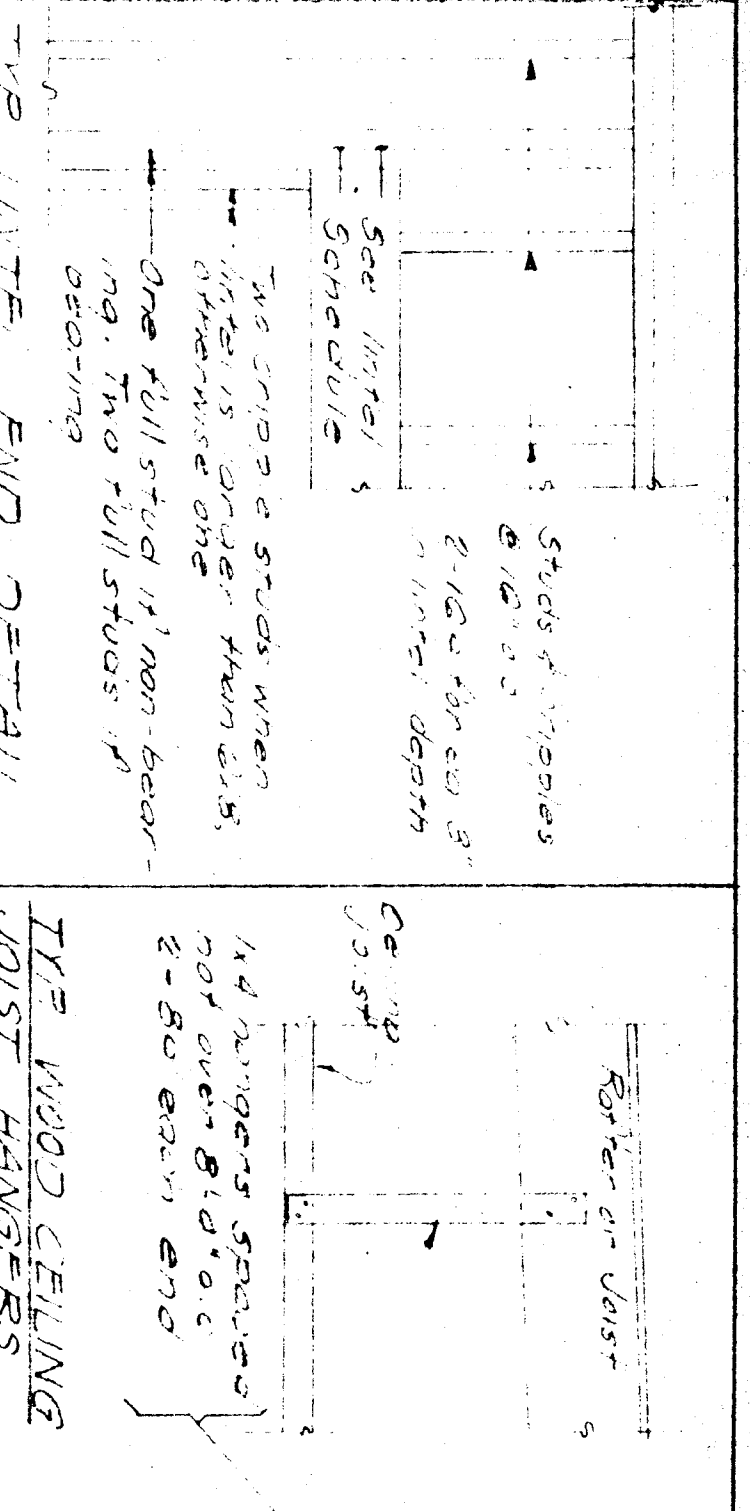 Studs & cripples
@ 16" o.c.
2-16d for ea 3"
lintel depth
See lintel
Schedule
Two cripple studs when
lintel is larger than 6x8,
otherwise one
One full stud if non-bear-
ing. Two full studs if
bearing
TYP LINTEL END DETAIL
Rafter or Joist
Ceiling
Joist
1x4 hangers spaced
not over 8'0" o.c.
2-8d each end
TYP. WOOD CEILING
JOIST HANGERS